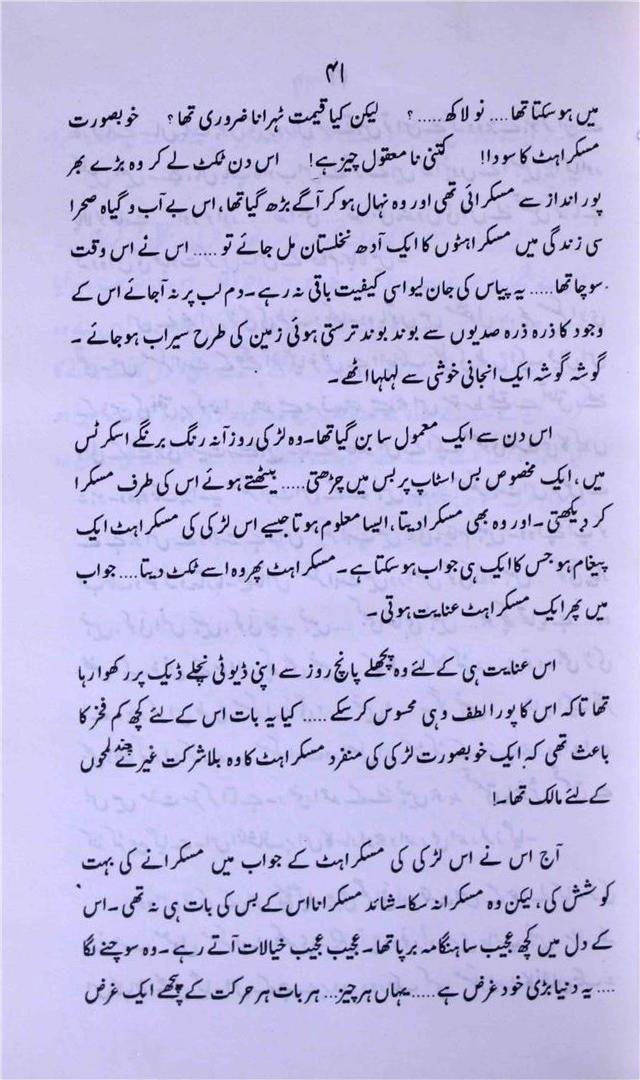 ۴۱
میں ہو سکتا تھا.... نو لاکھ.....؟ لیکن کیا قیمت ٹہرانا ضروری تھا؟ خوبصورت
مسکراہٹ کا سودا! کتنی نامعقول چیز ہے! اس دن ٹکٹ لے کر وہ بڑے بھر
پور انداز سے مسکرائی تھی اور وہ نہال ہو کر آگے بڑھ گیا تھا، اس بے آب و گیاہ صحرا
سی زندگی میں مسکراہٹوں کا ایک آدھ نخلستان مل جائے تو..... اس نے اس وقت
سوچا تھا..... یہ پیاس کی جان لیوا سی کیفیت باقی نہ رہے۔ دم لب پر نہ آجائے اس کے
وجود کا ذرہ ذرہ صدیوں سے بوند بوند ترستی ہوئی زمین کی طرح سیراب ہو جائے۔
گوشہ گوشہ ایک انجانی خوشی سے لہلہا اٹھے۔
اس دن سے ایک معمول سا بن گیا تھا۔ وہ لڑکی روز آنہ رنگ برنگے اسکرٹس
میں، ایک مخصوص بس اسٹاپ پر بس میں چڑھتی..... بیٹھتے ہوئے اس کی طرف مسکرا
کر دیکھتی۔ اور وہ بھی مسکرا دیتا، ایسا معلوم ہوتا جیسے اس لڑکی کی مسکراہٹ ایک
پیغام ہو جس کا ایک ہی جواب ہو سکتا ہے۔ مسکراہٹ پھر وہ اسے ٹکٹ دیتا.... جواب
میں پھر ایک مسکراہٹ عنایت ہوتی۔
اس عنایت ہی کے لئے وہ پچھلے پانچ روز سے اپنی ڈیوٹی نچلے ڈیک پر رکھوا رہا
تھا تاکہ اس کا پورا لطف وہی محسوس کر سکے..... کیا یہ بات اس کے لئے کچھ کم فخر کا
باعث تھی کہ ایک خوبصورت لڑکی کی منفرد مسکراہٹ کا وہ بلا شرکت غیرے چند لمحوں
کے لئے مالک تھا۔!
آج اس نے اس لڑکی کی مسکراہٹ کے جواب میں مسکرانے کی بہت
کوشش کی، لیکن وہ مسکرا نہ سکا۔ شائد مسکرانا اس کے بس کی بات ہی نہ تھی۔ اس
کے دل میں کچھ عجیب سا ہنگامہ برپا تھا۔ عجیب عجیب خیالات آتے رہے۔ وہ سوچنے لگا
.... یہ دنیا بڑی خود غرض ہے..... یہاں ہر چیز... ہر بات ہر حرکت کے پیچھے ایک غرض